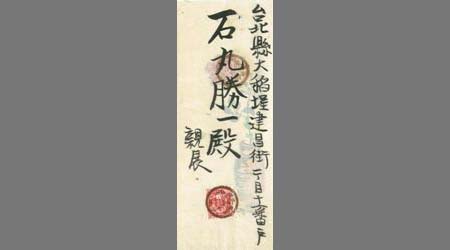 台北縣大稻埕建昌街一丁目十一番戶
石丸勝一殿
親展